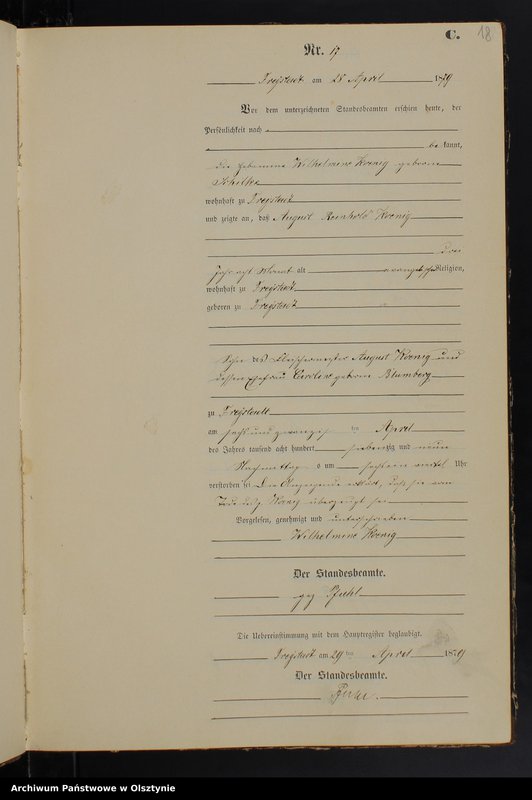 C.
18
Nr. 17
am 28 April 1879
Vor dem unterzeichneten Standesbeamten erschien heute, der
Persönlichkeit nach
be kannt,
die Wilhelmine Koenig geborene
wohnhaft zu
und zeigte an, daß August Reinhold Koenig
drei
Jahr acht Monat alt evangelischer Religion,
wohnhaft zu
geboren zu
Sohn des Fleischermeister August Koenig und
dessen Ehefrau geborene Blumberg
zu
am sechsundzwanzigsten April
des Jahres tausend acht hundert siebenzig und neun
Nachmittags um Uhr
verstorben sei Die Anzeigende erklärt, daß sie vom
Tode des Koenig überzeugt sei
Vorgelesen, genehmigt und unterschrieben
Wilhelmine Koenig
Der Standesbeamte.
gez
Die Uebereinstimmung mit dem Hauptregister beglaubigt.
am 29 ten April 1879
Der Standesbeamte.
Archiwum Państwowe w Olsztynie